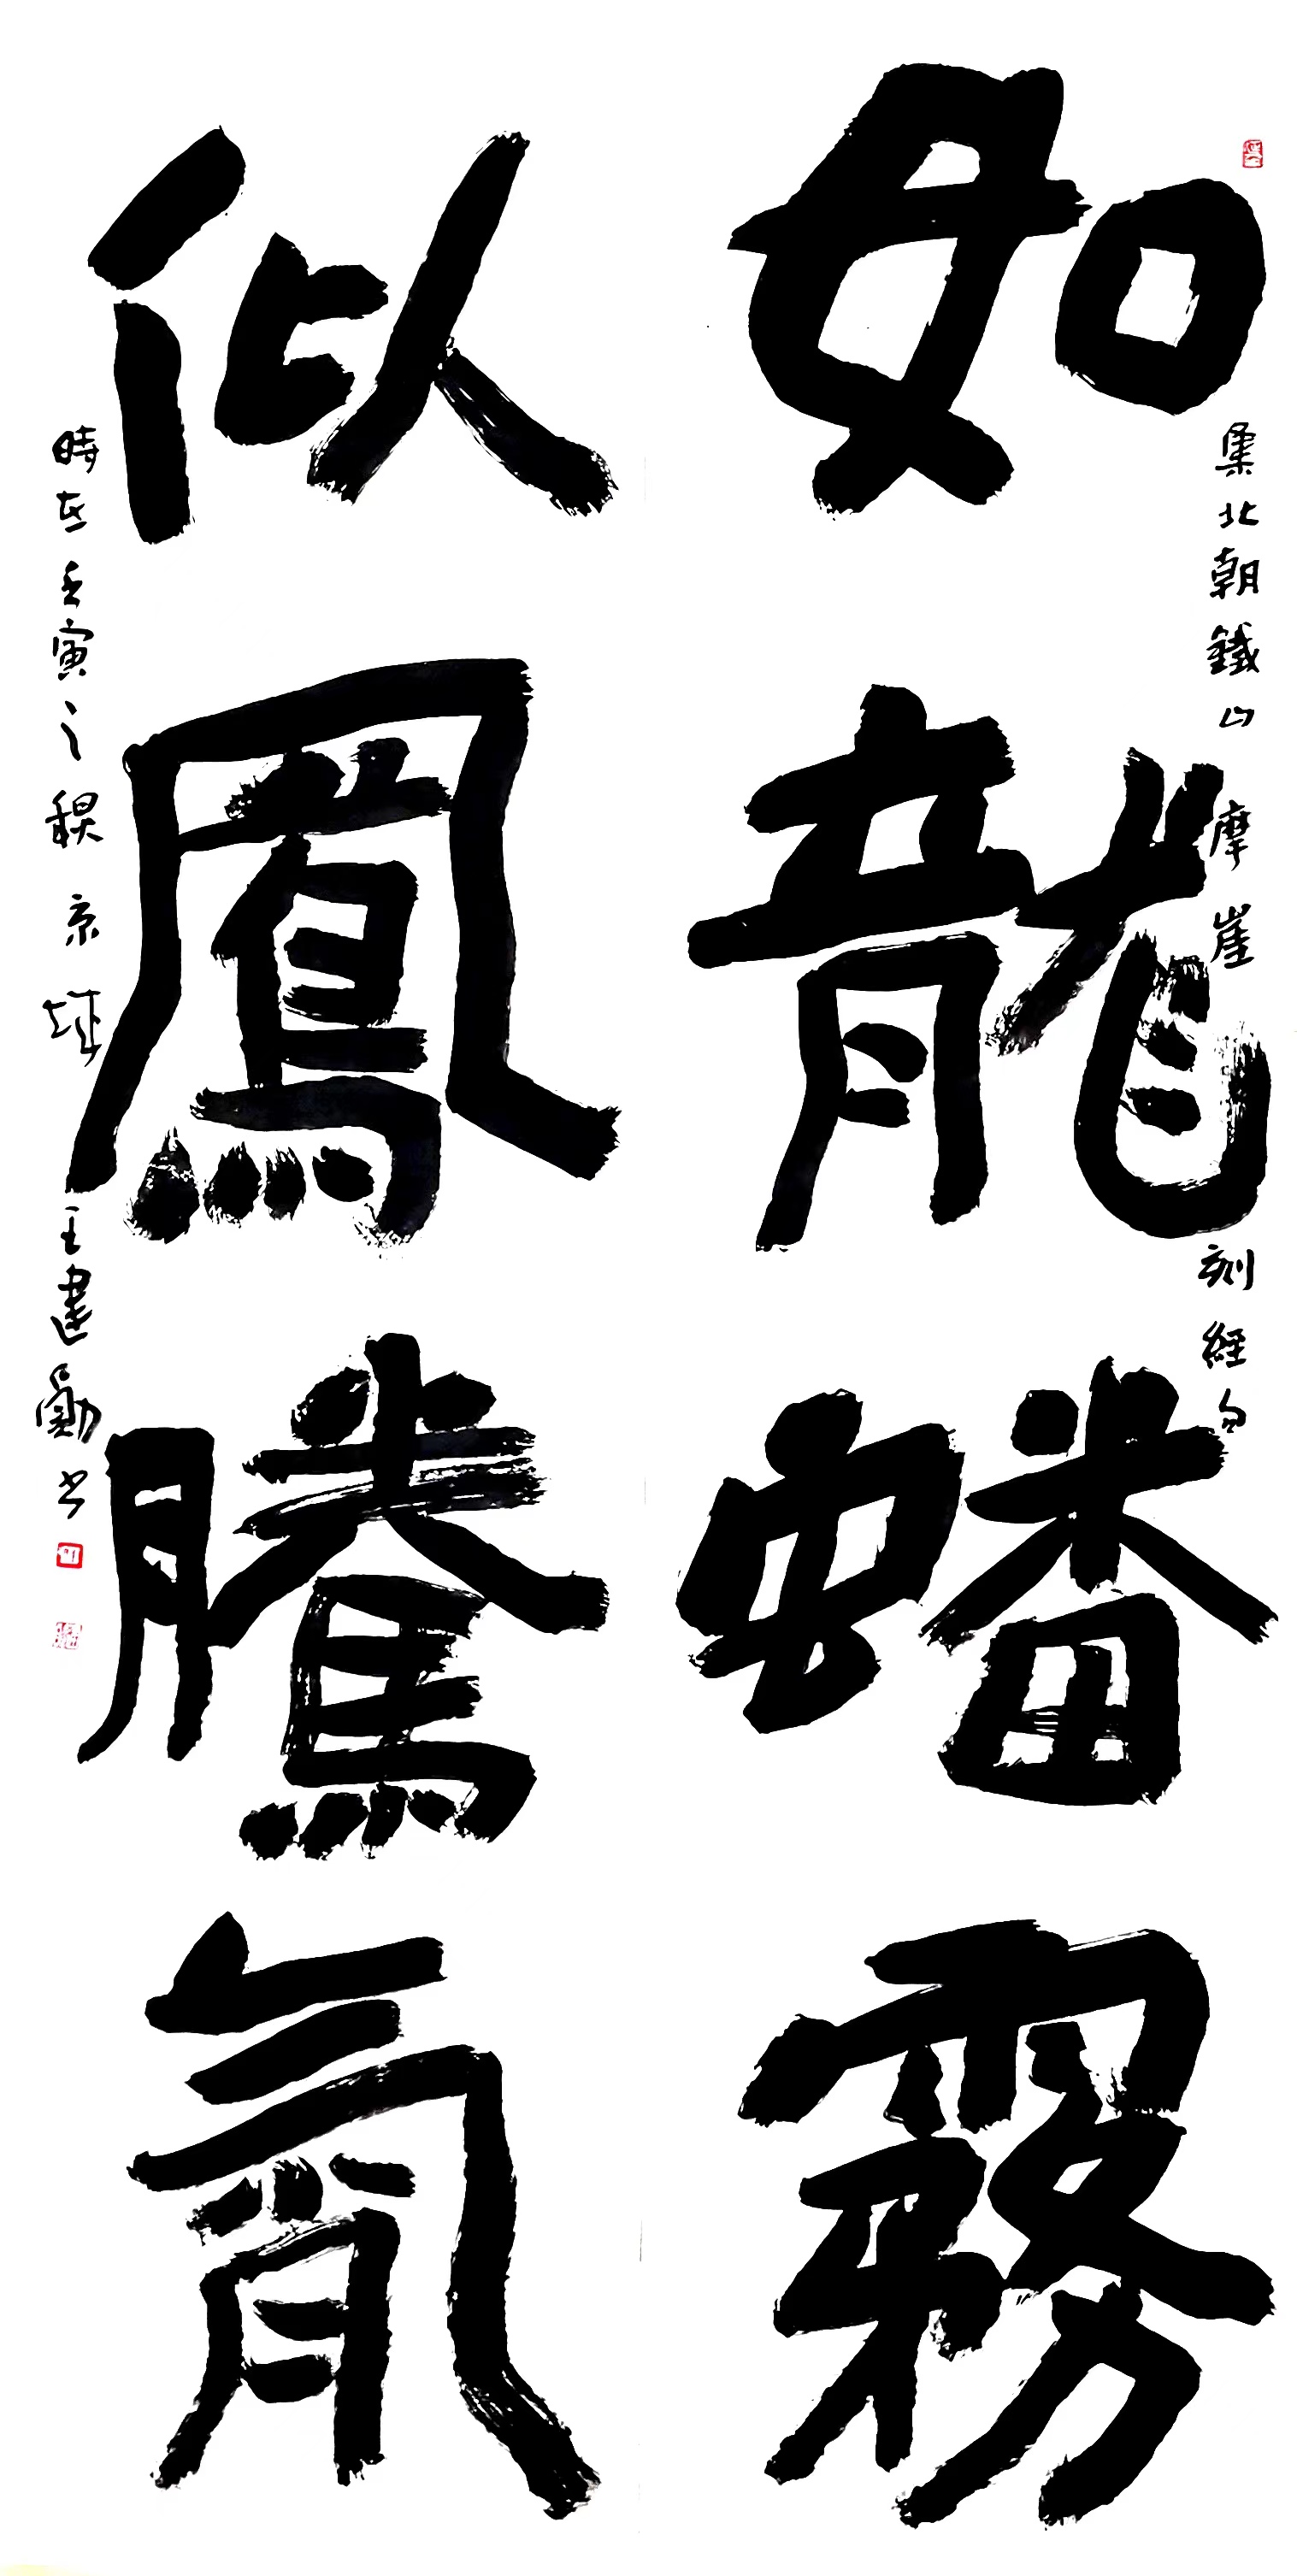 如龍蟠霧
集北朝鐵山摩崖刻經句
似鳳騰氣
時在壬寅之秋京城王建勛書